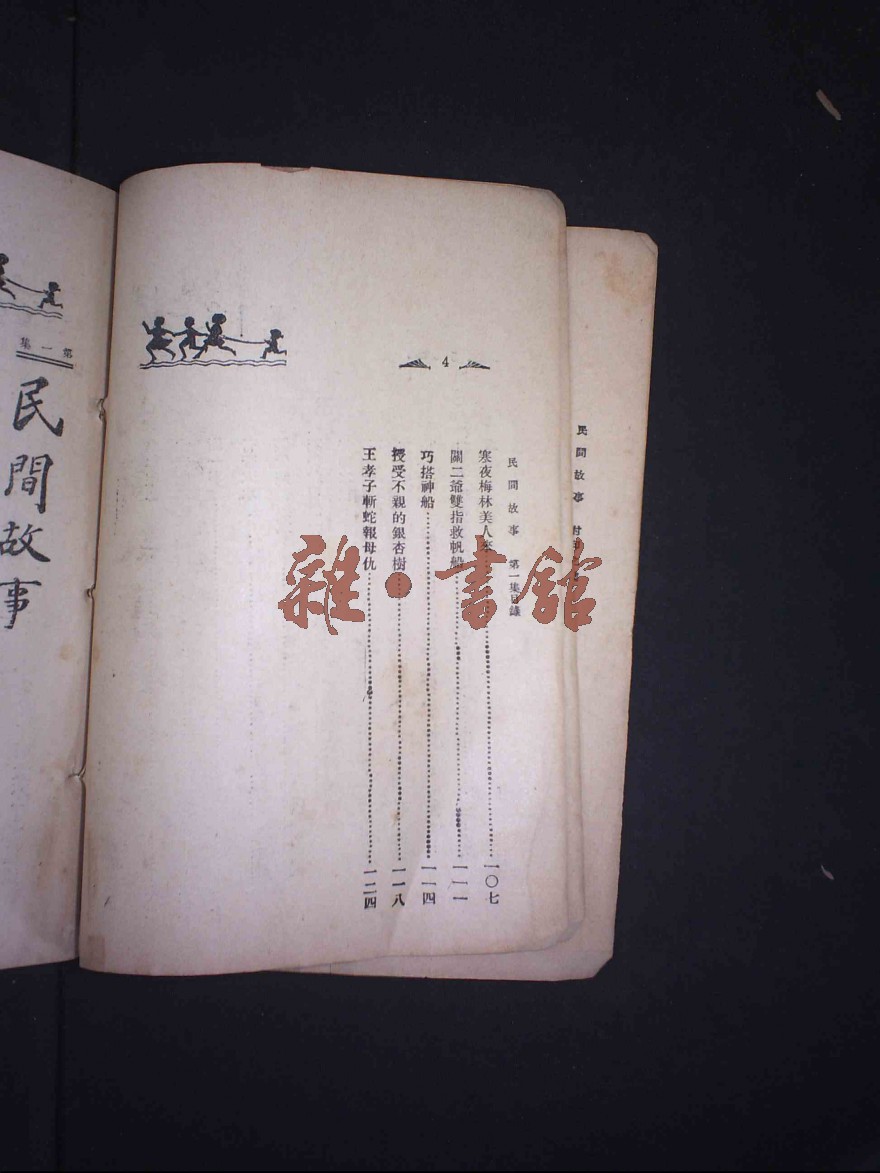 4
民間故事 第一集目錄
寒夜梅林美人來……一〇七
關二爺雙指救帆船……一一一
巧搭神船……一一四
授受不親的銀杏樹……一一八
王孝子斬蛇報母仇……一二四
民間故事
第一集
民間故事
雜·書館